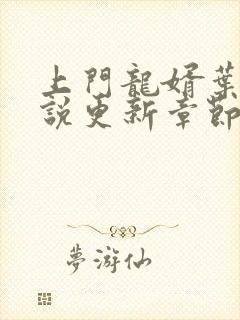 上門龍婿葉
説更新章節
夢游仙